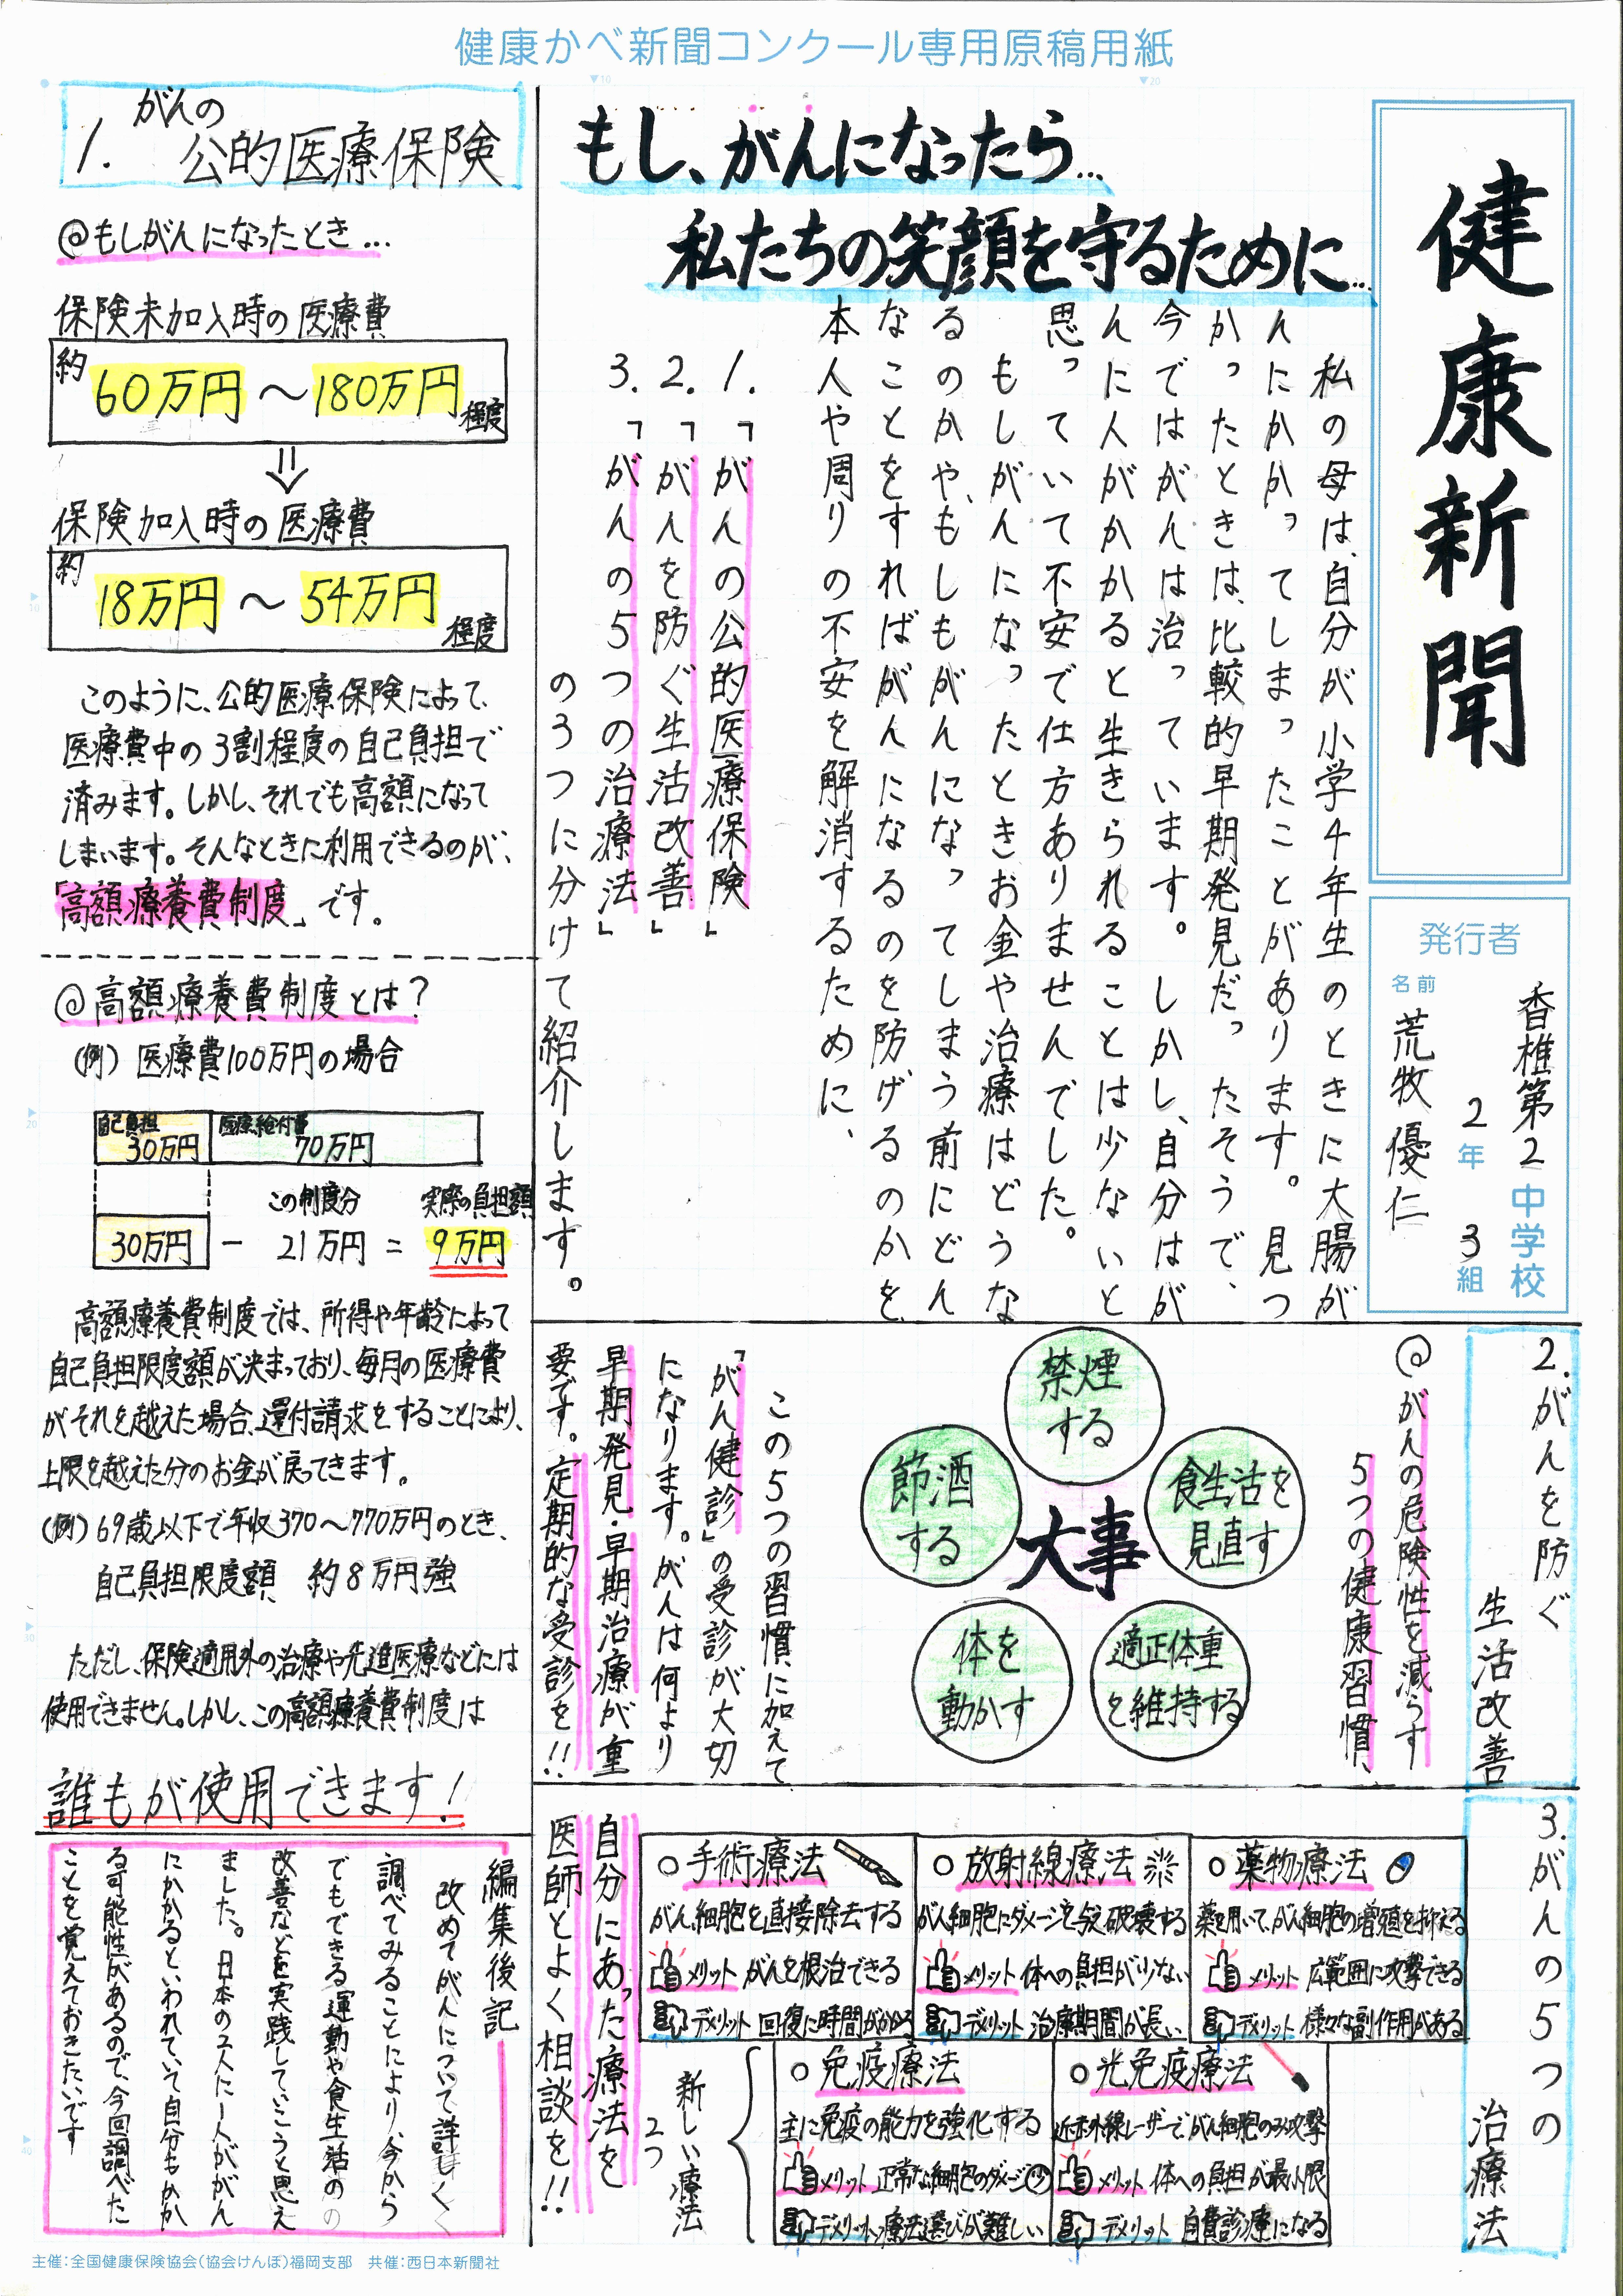 健康かべ新聞コンクール専用原稿用紙
健康新聞
発行者
香椎第2中学校
2年3組
名前 荒牧優仁
もし、がんになったら…
私たちの笑顔を守るために…
私の母は、自分が小学4年生のときに大腸が
んにかかってしまったことがあります。見つ
かったときは、比較的早期発見だったそうで、
今ではがんは治っています。しかし、自分はが
んに人がかかると生きられることは少ないと
思っていて不安で仕方ありませんでした。
もしがんになったときお金や治療はどうな
るのかや、もしもがんになってしまう前にどん
なことをすればがんになるのを防げるのかを
本人や周りの不安を解消するために、
1.「がんの公的医療保険」
2.「がんを防ぐ生活改善」
3.「がんの5つの治療法」
の3つに分けて紹介します。
1.がんの
公的医療保険
@もしがんになったとき…
保険未加入時の医療費
約60万円〜180万円程度
⇓
保険加入時の医療費
約18万円〜54万円程度
このように、公的医療保険によって、
医療費中の3割程度の自己負担で
済みます。しかし、それでも高額になって
しまいます。そんなときに利用できるのが、
「高額療養費制度」です。
@高額療養費制度とは?
(例)医療費100万円の場合
自己負担 医療給付費
30万円 70万円
この制度分 実際の負担額
30万円 − 21万円 = 9万円
高額療養費制度では、所得や年齢によって
自己負担限度額が決まっており、毎月の医療費
がそれを越えた場合、還付請求をすることにより、
上限を越えた分のお金が戻ってきます。
(例)69歳以下で年収370〜770万円のとき、
自己負担限度額 約8万円強
ただし、保険適用外の治療や先進医療などには
使用できません。しかし、この高額療養費制度は
誰もが使用できます!
2.がんを防ぐ
生活改善
@がんの危険性を減らす
5つの健康習慣、
禁煙
する
食生活を
見直す
適正体重
を維持する
体を
動かす
節酒
する
大事
この5つの習慣に加えて
「がん健診」の受診が大切
になります。がんは何より
早期発見・早期治療が重
要です。定期的な受診を!!
3.がんの5つの
治療法
○薬物療法
薬を用いて、がん細胞の増殖を抑える
メリット 広範囲に攻撃できる
デメリット 様々な副作用がある
○放射線療法
がん細胞にダメージを与え破壊する
メリット 体への負担が少ない
デメリット 治療期間が長い
○手術療法
がん細胞を直接除去する
メリット がんを根治できる
デメリット 回復に時間がかかる
○光免疫療法
近赤外線レーザーで、がん細胞のみ攻撃
メリット 体への負担が最小限
デメリット 自費診療になる
○免疫療法
主に免疫の能力を強化する
メリット 正常な細胞のダメージ少
デメリット 療法選びが難しい
新しい療法
2つ
自分にあった療法を
医師とよく相談を!!
編集後記
改めてがんについて詳しく
調べてみることにより、今から
でもできる運動や食生活の
改善などを実践していこうと思え
ました。日本の2人に1人ががん
にかかるといわれていて自分もかか
る可能性があるので、今回調べた
ことを覚えておきたいです
主催:全国健康保険協会(協会けんぽ)福岡支部 共催:西日本新聞社